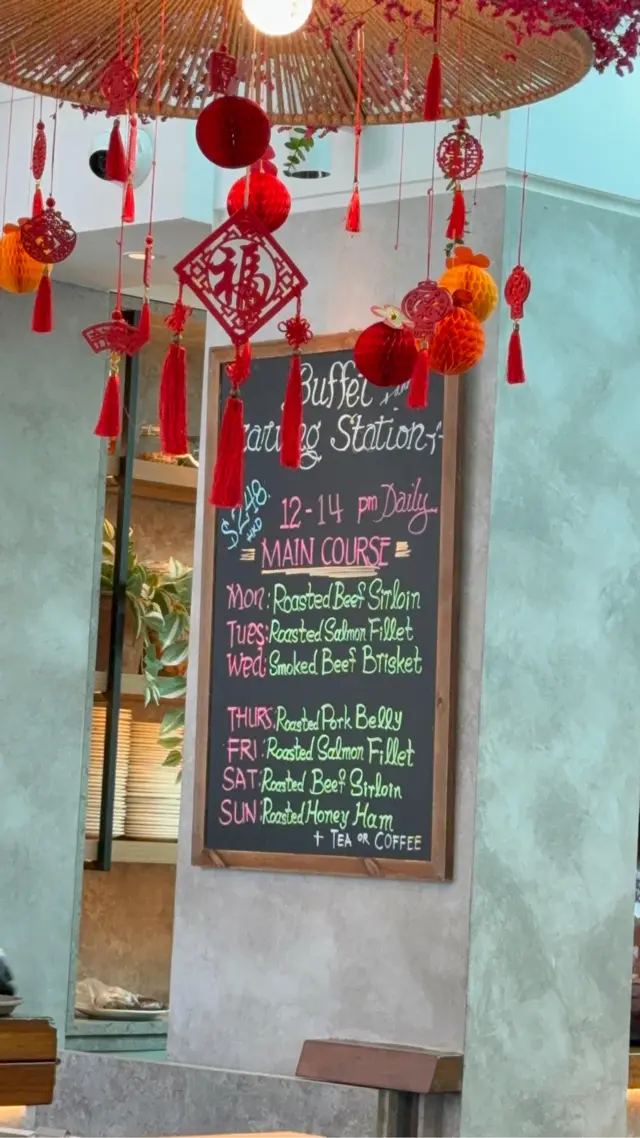 福
Buffet
Station
$248.
HKD
12-14 pm Daily
MAIN COURSE
Mon: Roasted Beef Sirloin
Tues: Roasted Salmon Fillet
Wed: Smoked Beef Brisket
THURS: Roasted Pork Belly
FRI: Roasted Salmon Fillet
SAT: Roasted Beef Sirloin
SUN: Roasted Honey Ham
+ TEA OR COFFEE